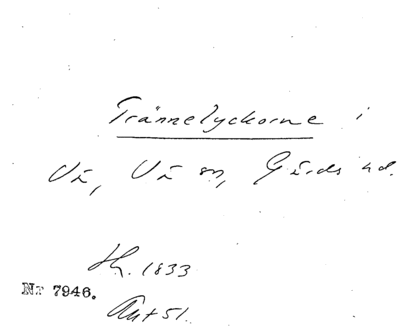 Trännelyckorne i
Vä, Vä sn, Gärds hd.
Sk. 1833
Nr 7946.
Akt 51.